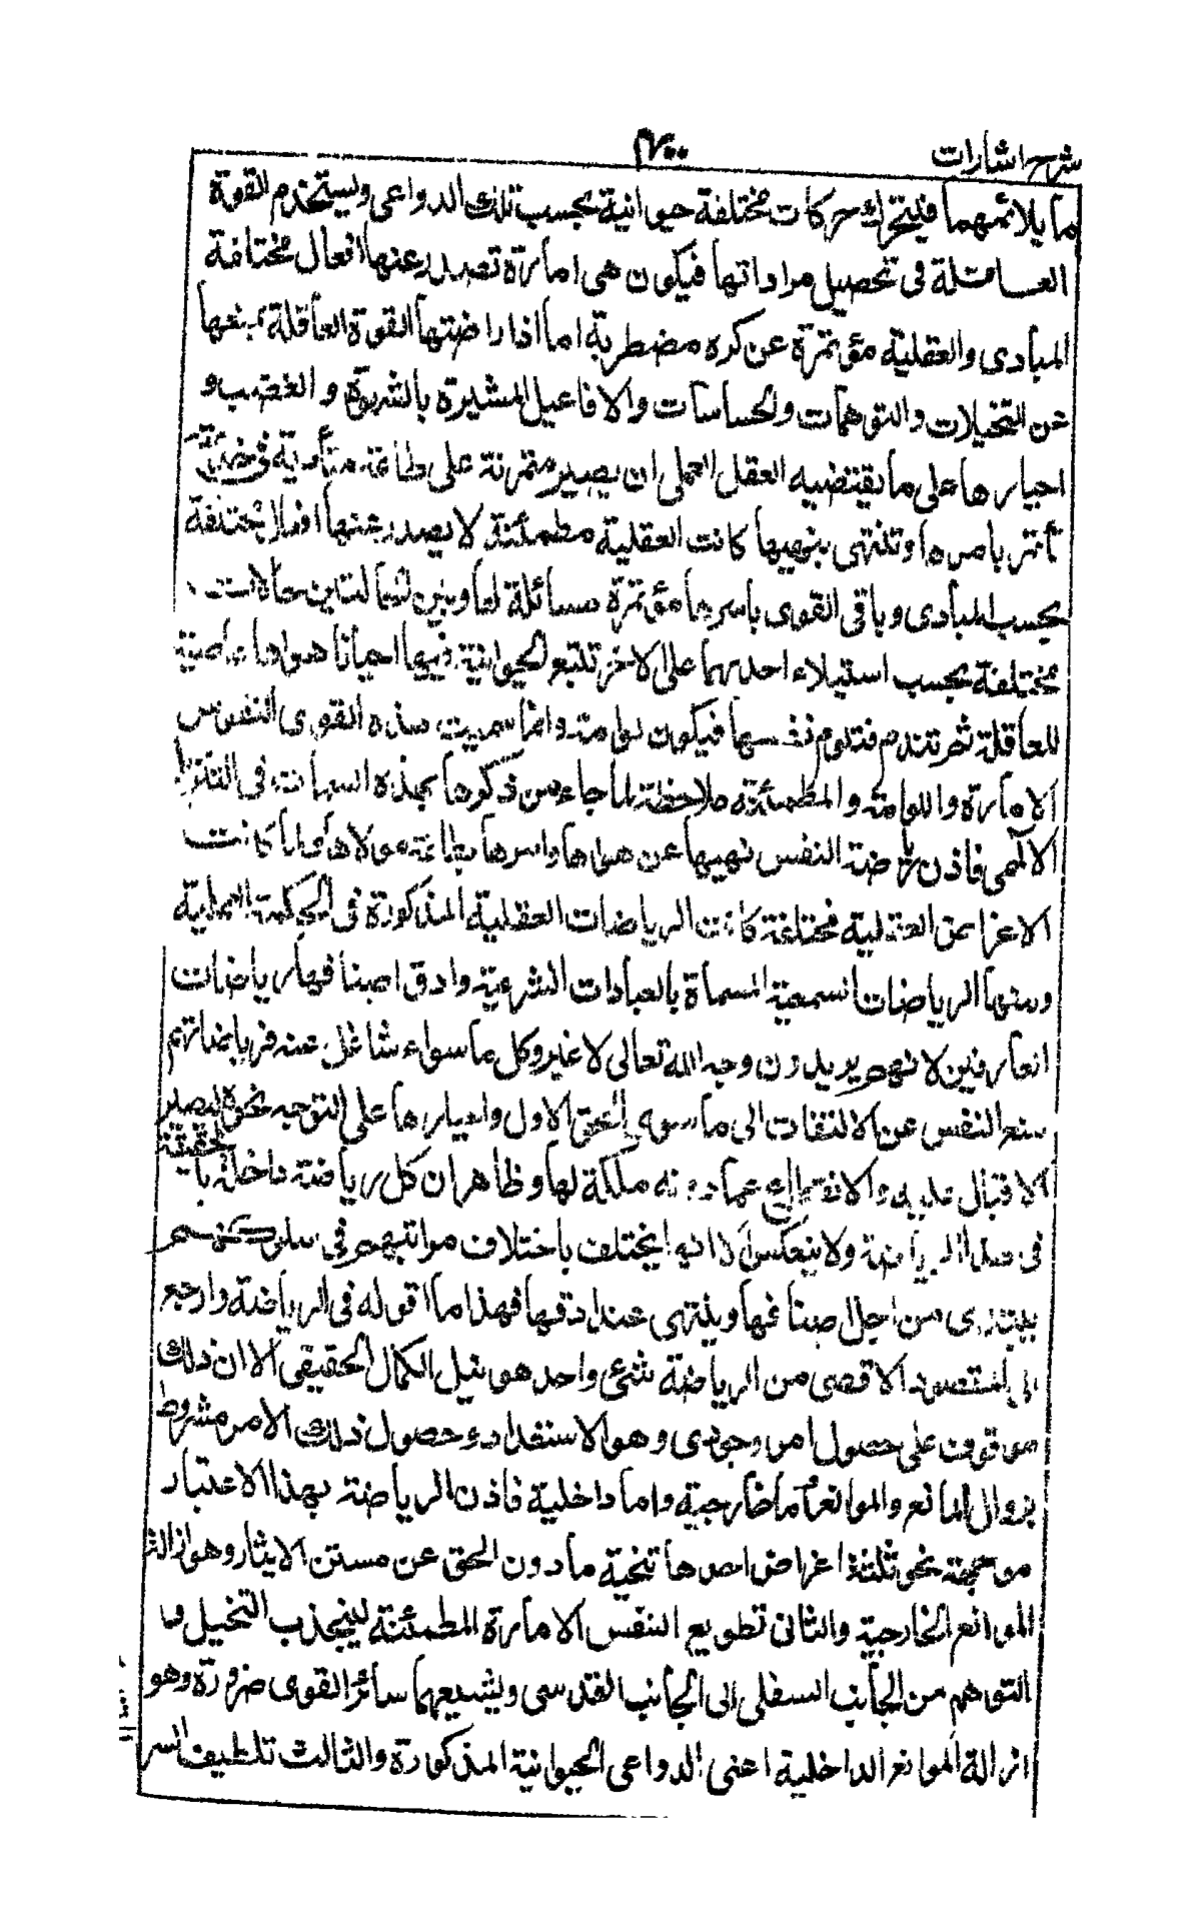 شرح اشارات
ما يلائمهما فليتحرك حركات مختلفة حيوانية بحسب تلك الدواعى ويستخدم القوة
العاملة فى تحصيل مراداتها فيكون هى امارة تصدر عنها افعال مختلفة
المبادى والعقلية مؤتمرة عن كره مضطربة اما اذا راضتها القوة العاقلة بمنعها
عن التخيلات والتوهمات والحساسات والافاعيل المشيرة بالشهوة والغضب و
اجبارها على ما يقتضيه العقل العملى ان يصير متمرنة على طاعة متأدية فى خدمته
تأتمر بامرها وتنتهى بنهيها كانت العقلية مطمئنة لا يصدر عنها افعالا مختلفة
بحسب المبادى وباقى القوى باسرها مؤتمرة مسائلة لها وبين الحالتين حالات
مختلفة بحسب استيلاء احديهما على الاخر تتبع الحيوانية فيها احيانا هواها عاصية
للعاقلة ثم تندم فتلوم نفسها فيكون لوامة وانما سميت هذه القوى النفوس
الامارة واللوامة والمطمئنة ملاحظة لما جاء من ذكرها بهذه السمات فى التنزيل
الالهى فاذن رياضة النفس نهيها عن هواها وامرها بطاعة مولاها ولما كانت
الاغراض العقلية مختلفة كانت الرياضات العقلية المذكورة فى الحكمة العملية
ومنها الرياضات السمعية المسماة بالعبادات الشرعية وادق اصنافها رياضات
العارفين لانهم يريدون وجه الله تعالى لا غير وكل ما سواه شاغل عنه فرياضاتهم
منع النفس عن الالتفات الى ما سوى الحق الاول واجبارها على التوجه نحوه ليصير
الاقبال عليه والانقطاع عما دونه ملكة لها وظاهر ان كل رياضة داخلة بالحقيقة
فى هذه الرياضة ولا ينعكس يختلف باختلاف مراتبهم فى سلوكهم
يبتدى من اجل اصنافها وينتهى عند ادقها فهذا ما اقوله فى الرياضة وارجع
الى المقصود الاقصى من الرياضة شئ واحد هو نيل الكمال الحقيقى الا ان ذلك
موقوف على حصول امر وجودى وهو الاستعداد وحصول ذلك الامر مشروط
بزوال المانع والموانع اما خارجية واما داخلية فاذن الرياضة بهذا الاعتبار
موجهة نحو ثلثة اغراض احدها تنحية ما دون الحق عن مستن الايثار وهو ازالة
الموانع الخارجية والثانى تطويع النفس الامارة للمطمئنة لينجذب التخيل و
التوهم من الجانب السفلى الى الجانب القدسى ويشيعهما سائر القوى ضرورة وهو
ازالة الموانع الداخلية اعنى الدواعى الحيوانية المذكورة والثالث تلطيف السر